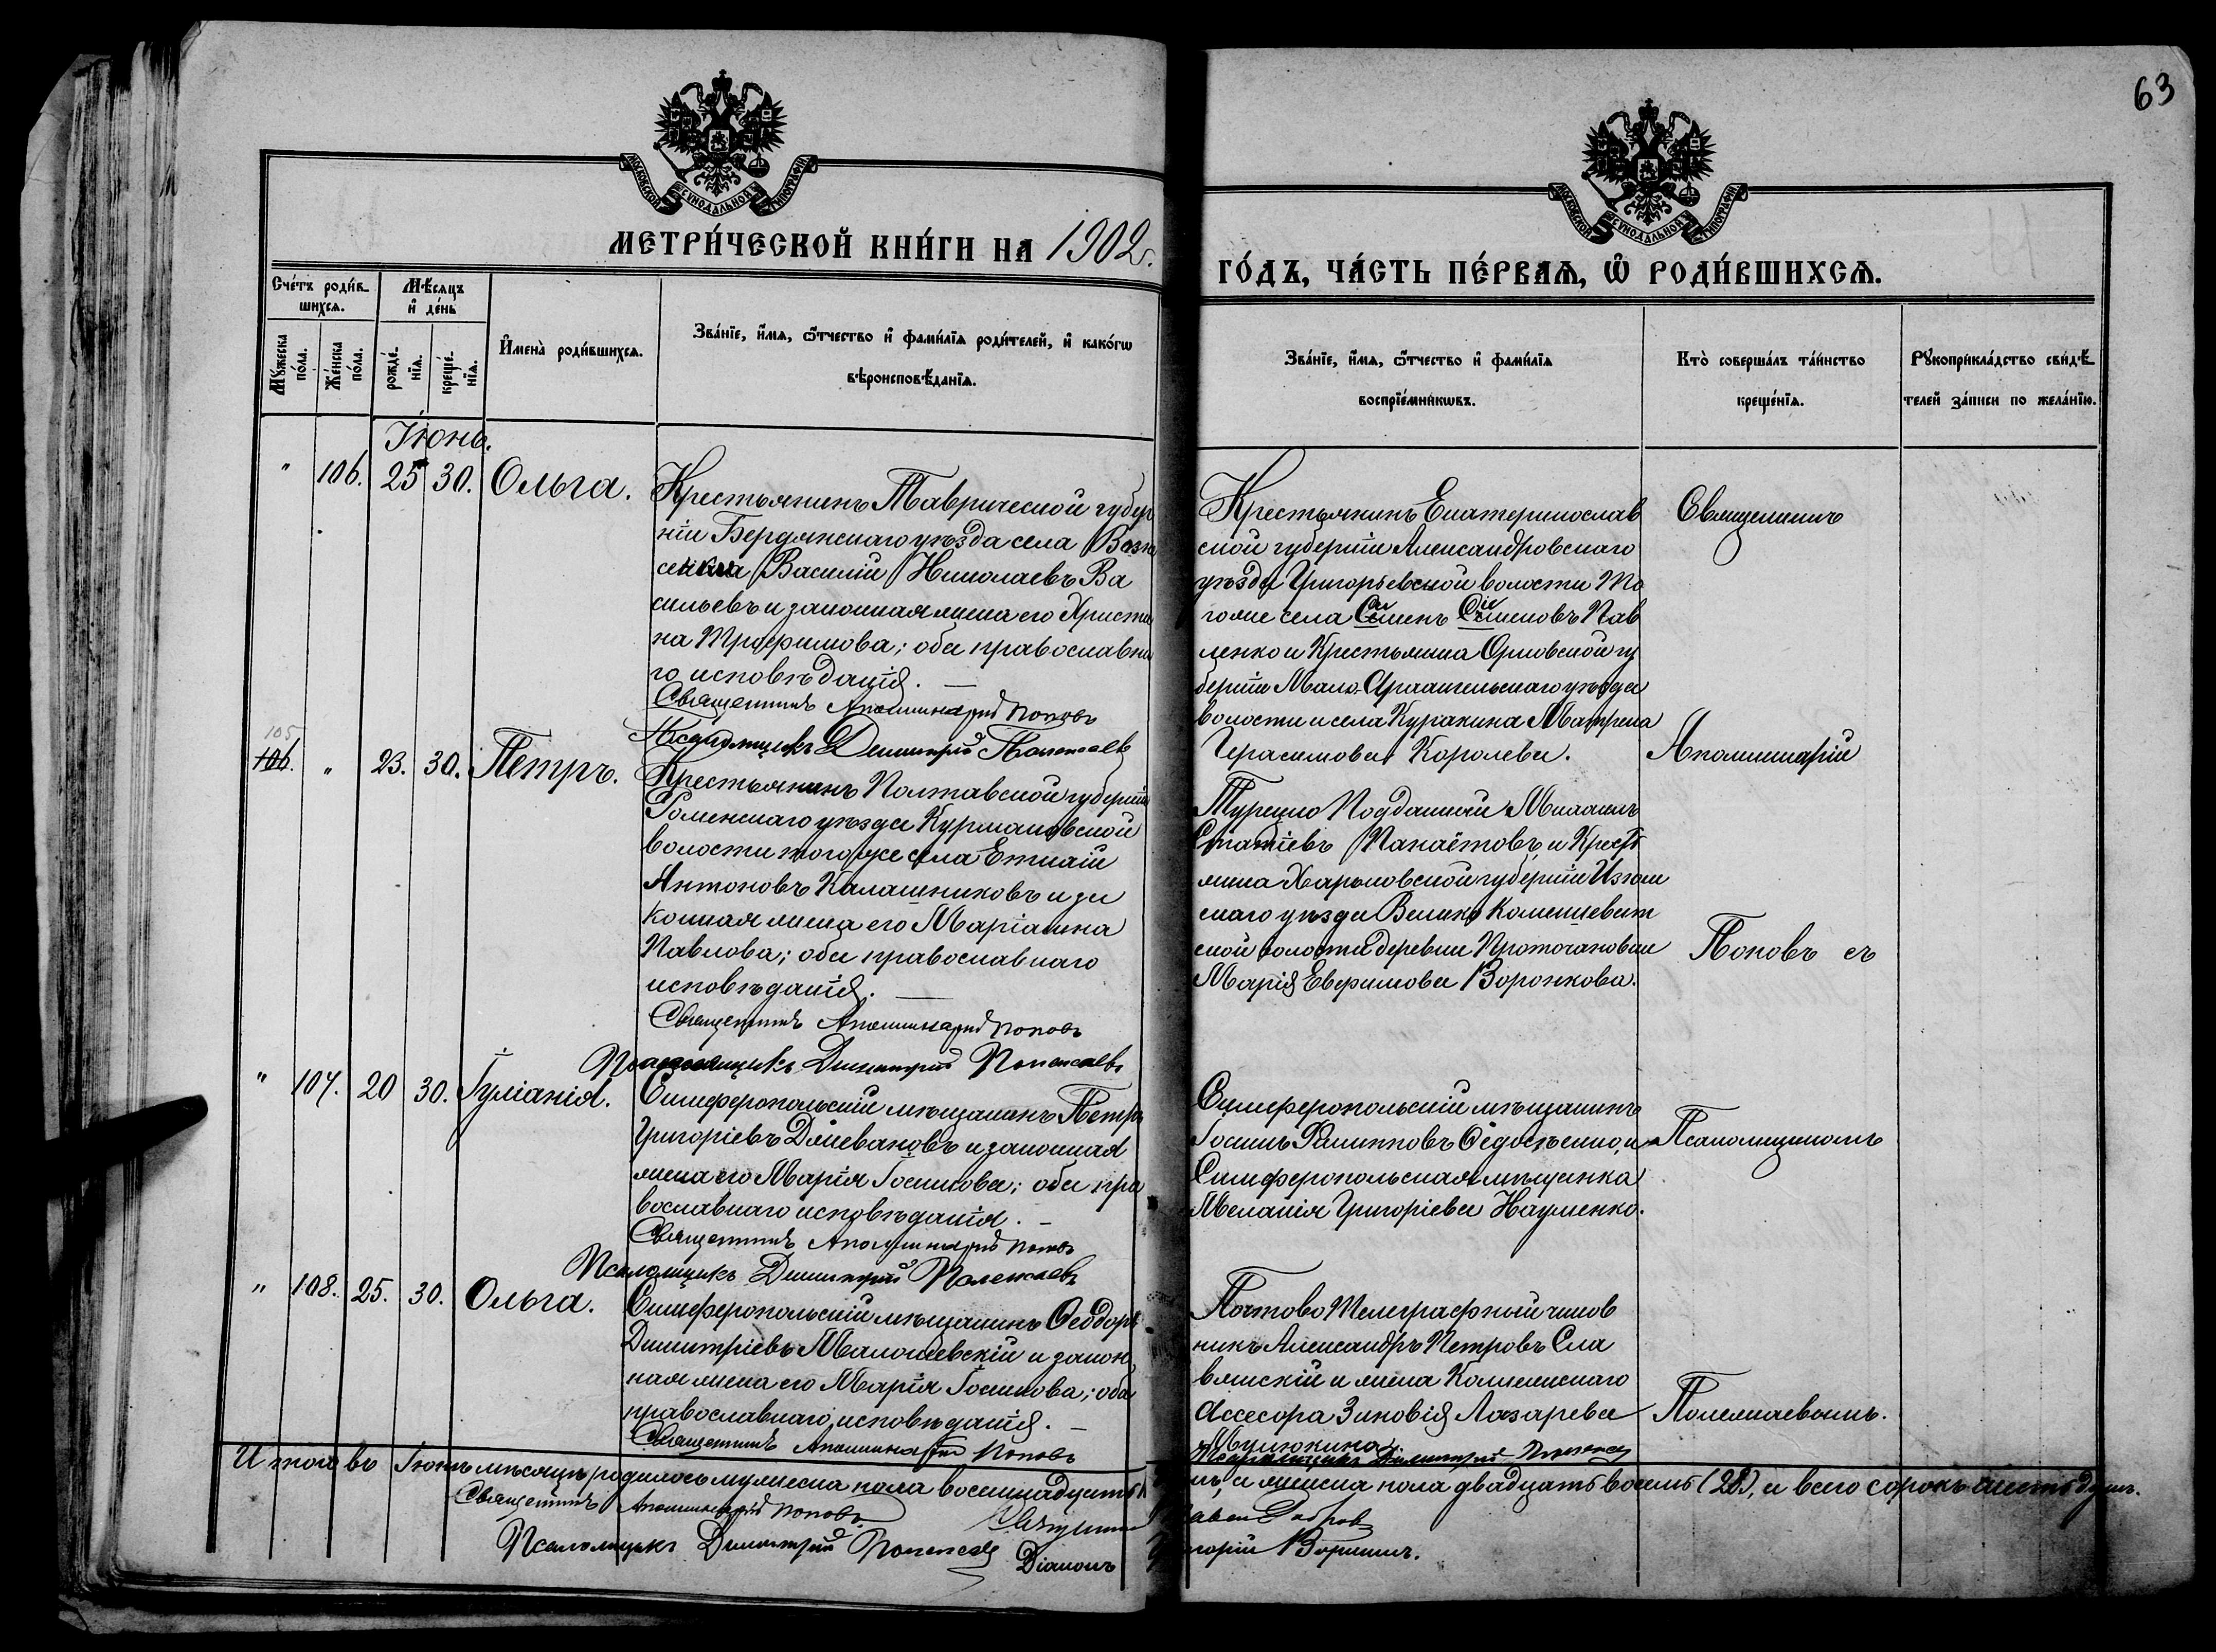 63
МОСКОВСКОЙ СѴНОДАЛЬНОЙ ТИПОГРАФІИ
МОСКОВСКОЙ СѴНОДАЛЬНОЙ ТИПОГРАФІИ
МЕТРИ́ЧЕСКОЙ КНИ́ГИ НА 1902 г.
ГО́ДЪ, ЧА́СТЬ ПЕ́РВАѦ, Ѡ҆ РОДИ́ВШИХСѦ.
Сче́тъ роди́в
шихсѧ.
Мѣ́сѧцъ
и҆ де́нь
Мꙋ́жеска по́ла.
Же́нска по́ла.
рожде́нїѧ.
креще́нїѧ.
И҆мена̀ роди́вшихсѧ.
Зва́нїе, и҆́мѧ, ѻ҆́тчество и҆ фамі́лїѧ роди́телей, и҆ како́гѡ
вѣроисповѣ́данїѧ.
Зва́нїе, и҆́мѧ, ѻ҆́тчество и҆ фамі́лїѧ
воспрїе́мникѡвъ.
Кто̀ соверша́лъ та́инство
креще́нїѧ.
Рꙋкоприкла́дство свидѣ́
телей за́писи по жела́нїю.
Іюнь.
" 106. 25 30. Ольга.
Крестьянинъ Таврической губер
ніи Бердянскаго уѣзда села Возне
сенска Василій Николаевъ Ва
сильевъ и законная жена его Христи
на Трофимова; оба православна
го исповѣданія. —
Священникъ Аполлинарій Поповъ
Псаломщикъ Димитрій Полежаевъ
Крестьянинъ Екатеринослав
ской губерніи Александровскаго
уѣзда Григорьевской волости то
гоже села Семенъ Семеновъ Пав
ленко и Крестьянка Орловской гу
берніи Мало-Архангельскаго уѣзда
волости и села Куракина Матрена
Герасимова Королева.
Священникъ
Аполлинарій
Поповъ съ
Псаломщикомъ
Полежаевымъ.
105
106. " 23. 30. Петръ.
Крестьянинъ Полтавской губерніи
Роменскаго уѣзда Курмановской
волости того же села Евтихій
Антоновъ Калашниковъ и за
конная жена его Маріанна
Павлова; оба православнаго
исповѣданія. —
Священникъ Аполлинарій Поповъ
Псаломщикъ Димитрій Полежаевъ
Турецко Подданный Михаилъ
Панаіотовъ и Крестъ
янка Харьковской губерніи Изюм
скаго уѣзда Велико Комышеват
ской волости деревни
Марія Евфимова Воронкова.
" 107. 20 30. Іуліанія.
Симферопольскій мѣщанинъ Петръ
Григоріевъ и законная
жена его Марія Іосифова; оба пра
вославнаго исповѣданія. —
Священникъ Аполлинарій Поповъ
Псаломщикъ Димитрій Полежаевъ
Симферопольскій мѣщанинъ
Іосифъ Филипповъ Ѳедосѣенко, и
Симферопольская мѣщанка
Меланія Григоріева Науменко.
" 108. 25. 30. Ольга.
Симферопольскій мѣщанинъ Ѳеодоръ
Димитріевъ Малошевскій и закон
ная жена его Марія Іосифова; оба
православнаго исповѣданія. —
Священникъ Аполлинарій Поповъ
Почтово Телеграфный чинов
никъ Александръ Петровъ Сла
вянскій и жена Коллежскаго
Ассесора Зиновія Лазарева
Мулюкина.
Псаломщикъ Димитрій Полежаевъ
Итого въ Іюнѣ мѣсяцѣ родилось мужеска пола восемнадцать и женска пола двадцать восемь (28), и всего сорокъ шесть душъ.
Священникъ Аполлинарій Поповъ
Псаломщикъ Димитрій Полежаевъ
Діаконъ Григорій